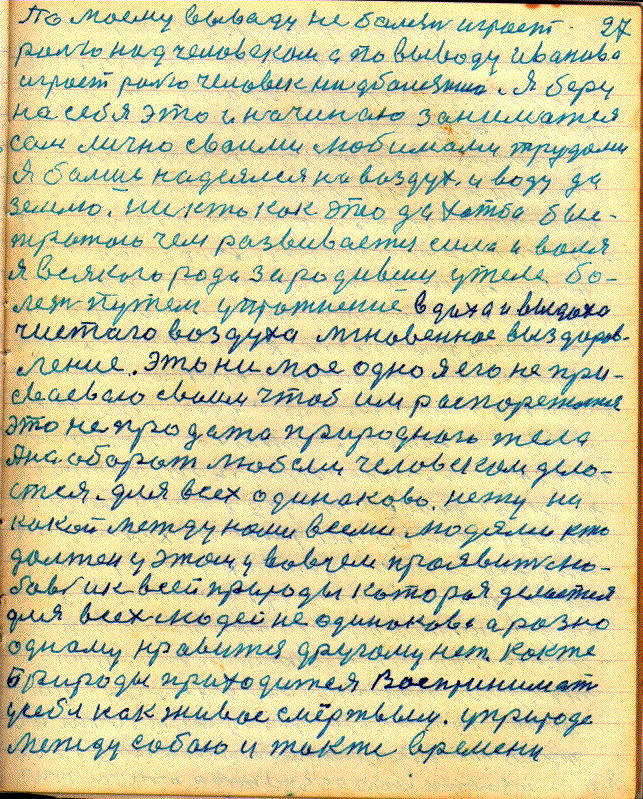 По моему выводу не балезн играет 27
ролю над человеком а по выводу Иванова
играет ролю человек над балезнию. Я беру
на себя это и начинаю заниматся
сам лично своими любимами трудами
Я больше надеялся на воздух и воду да
землю. Ни кто как это да хотба быс-
тротою чем развивается сила и воля
я всякого рода зародивши у теле бо-
лезн путем упражнение вдоха и выдоха
чистаго воздуха мгновенное выздоров-
ление. Это ни мое одно я его не при-
сваеваю своим чтоб им распорежатся
это не продажа природного тела
А на оборот любом человеком дело-
ется. для всех одинаково. нету ни
какой между нами всеми людями кто
должен у этом у вовчем проявит спо-
бавник всей природы которая делается
для всех людей не одинаково а разно
одному нравится другому нет. как же
Природы приходится Воспринимат
у себя как живое смёртвым. у природе
между собою и также времени